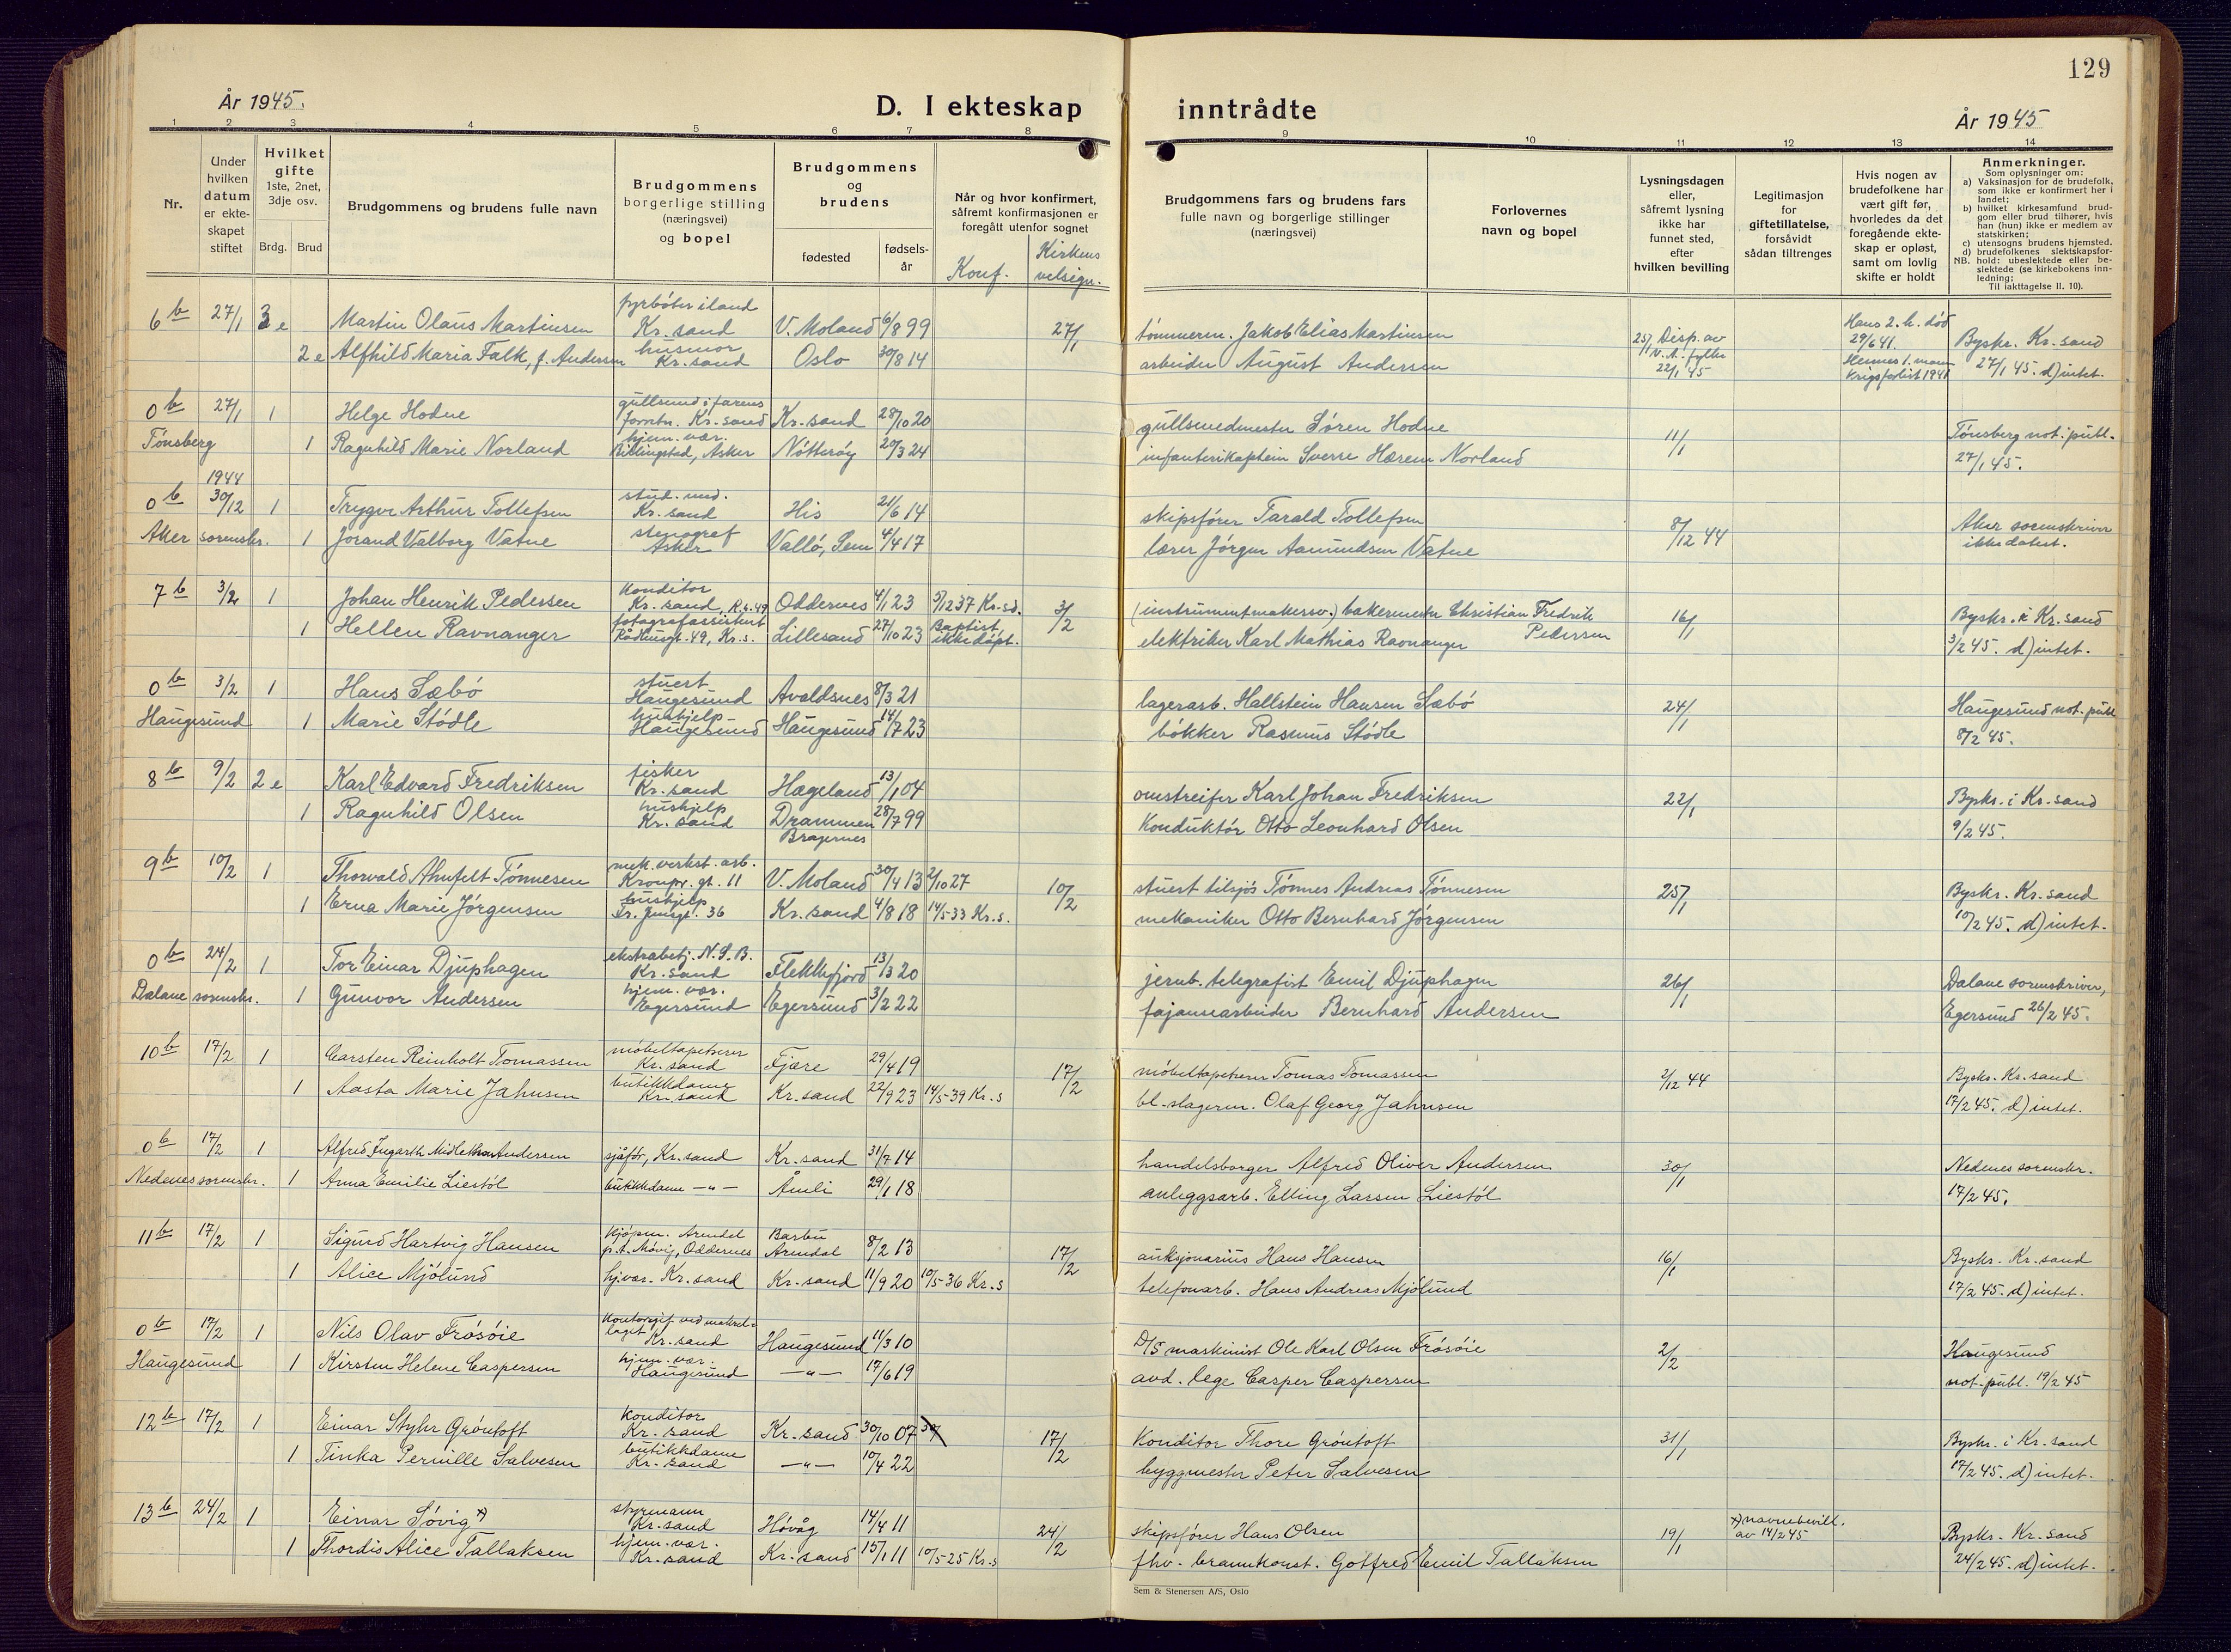 129
År 1945.
D. I ekteskap inntrådte
År 1945
1 2 3 4 5 6 7 8 9 10 11 12 13 14
Nr.
Under hvilken datum er ekteskapet stiftet
Hvilket gifte 1ste, 2net, 3dje osv.
Brdg. Brud
Brudgommens og brudens fulle navn
Brudgommens borgerlige stilling (næringsvei) og bopel
Brudgommens og brudens
fødested
fødsels-år
Når og hvor konfirmert, såfremt konfirmasjonen er foregått utenfor sognet
Konf.
Kirkens velsign.
Brudgommens fars og brudens fars fulle navn og borgerlige stillinger (næringsvei)
Forlovernes navn og bopel
Lysningsdagen eller, såfremt lysning ikke har funnet sted, efter hvilken bevilling
Legitimasjon for giftetillatelse, forsåvidt sådan tiltrenges
Hvis nogen av brudefolkene har vært gift før, hvorledes da det foregående ekteskap er opløst, samt om lovlig skifte er holdt
Anmerkninger.
Som oplysninger om:
a) Vaksinasjon for de brudefolk, som ikke er konfirmert her i landet;
b) hvilket kirkesamfund brudgom eller brud tilhører, hvis han (hun) ikke er medlem av statskirken;
c) utensogns brudens hjemsted.
d) brudefolkenes slektskapsforhold: ubeslektede eller beslektede (se kirkebokens innledning;
NB.
Til iakttagelse II. 10).
6 b 27/1 3 e Martin Olaus Martinsen fyrbøter iland Kr.sand V. Moland 6/8 99 27/1 tømmerm. Jakob Elias Martinsen 25/1 Disp. av v. A. fylke 22/1 45 Hans 2. h. død 29/6 41. Byskr. Kr.sand
2 e Alfhild Maria Falk, f. Andersen husmor Kr.sand Oslo 30/8 14 arbeider August Andersen Hennes 1. mann krigsforlist 1941 27/1 45. d) intet.
0 b 27/1 1 Helge Hodne gullsmed i farens forretn. Kr.sand Kr.sand 28/10 20 gullsmedmester Søren Hodne 11/1 Tønsberg not. publ.
Tønsberg 1 Ragnhild Marie Norland hjem. vær. Billingstad, Asker Nøtterøy 20/3 24 infanterikaptein Sverre Hærem Norland 27/1 45.
1944
0 b 30/12 1 Trygve Arthur Tollefsen stud. med. Kr.sand His 21/6 14 skipsfører Tarald Tollefsen 8/12 44 Aker sorenskriver
Aker sorenskr. 1 Jorand Valborg Vatne stenograf Asker Vallø, Sem 4/4 17 lærer Jørgen Aamundsen Vatne ikke datert.
7 b 3/2 1 Johan Henrik Pedersen konditor Kr.sand, R.g. 49 Oddernes 4/1 23 5/12 37 Kr.sd. 3/2 (instrumentmakersv.) bakermester Christian Fredrik Pedersen 16/1 Byskr. i Kr.sand
1 Hellen Ravnanger fotografassistent Rådhusgt. 49, Kr.s. Lillesand 27/10 23 Baptist, ikke døpt. elektriker Karl Mathias Ravnanger 3/2 45. d) intet.
0 b 3/2 1 Hans Sæbø stuert Haugesund Avaldsnes 8/3 21 lagerarb. Hallstein Hansen Sæbø 24/1 Haugesund not. publ
Haugesund 1 Marie Stødle hushjelp Haugesund Haugesund 14/7 23 bøkker Rasmus Stødle 8/2 45.
8 b 9/2 2 e Karl Edvard Fredriksen fisker Kr.sand Hægeland 13/1 04 omstreifer Karl Johan Fredriksen 22/1 Byskr. i Kr.sand
1 Ragnhild Olsen hushjelp Kr.sand Drammen Bragernes 28/7 99 konduktør Otto Leonhard Olsen 9/2 45.
9 b 10/2 1 Thorvald Ahnfelt Tønnesen mek. verkst. arb. Kronpr. gt. 11 V. Moland 30/4 13 2/10 27 10/2 stuert tilsjøs Tønnes Andreas Tønnesen 25/1 Byskr. Kr.sand
1 Erna Marie Jørgensen hushjelp Kr.sand 4/8 18 14/5-33 Kr.s. mekaniker Otto Bernhard Jørgensen 10/2 45. d) intet.
0 b 24/2 1 Tor Einar Djuphagen ekstrabetj. N.S.B. Kr.sand Flekkefjord 13/3 20 jernb. telegrafist Emil Djuphagen 26/1 Dalane sorenskriver,
Dalane sorenskr. 1 Gunvor Andersen hjem. vær. Egersund Egersund 3/2 22 fajansearbeider Bernhard Andersen Egersund 26/2 45.
10 b 17/2 1 Carsten Reinholt Tomassen møbeltapetserer Kr.sand Fjære 29/4 19 17/2 møbeltapetserer Tomas Tomassen 2/12 44 Byskr. Kr.sand
1 Aasta Marie Jahnsen butikkdame Kr.sand Kr.sand 22/9 23 14/5-39 Kr.s bl.slagerm. Olaf Georg Jahnsen 17/2 45. d) intet.
0 b 17/2 1 Alfred Ingarth Andersen sjåfør, Kr.sand Kr.sand 31/7 14 handelsborger Alfred Oliver Andersen 30/1 Nedenes sorenskr.
Nedenes sorenskr. 1 Anna Emilie Liestøl butikkdame -"- Åmli 29/1 18 anleggsarb. Elling Larsen Liestøl 17/2 45.
11 b 17/2 1 Sigurd Hartvig Hansen kjøpm. Arendal p.t. Møvig, Oddernes Barbu Arendal 8/2 13 17/2 auksjonarius Hans Hansen 16/1 Byskr. Kr.sand
1 Alice Mjølund hj.vær. Kr.sand Kr.sand 11/9 20 10/5-36 Kr.s telefonarb. Hans Andreas Mjølund 17/2 45. d) intet.
0 b 17/2 1 Nils Olav Frøsøie Kr.sand Haugesund 11/3 10 D/S maskinist Ole Karl Olsen Frøsøie 2/2 Haugesund
Haugesund 1 Kirsten Helene Caspersen hjem. vær. Haugesund -"- 17/6 19 avd. lege Casper Caspersen not. publ. 19/2 45
12 b 17/2 1 Einar Styhr Grøntoft konditor Kr.sand Kr.sand 30/10 07 17/2 konditor Thore Grøntoft 31/1 Byskr. i Kr.sand
1 Tinka Pernille Salvesen butikkdame Kr.sand -"- 10/4 22 byggmester Peter Salvesen 17/2 45. d) intet.
13 b 24/2 1 Einar Søvig x) styrmann Kr.sand Høvåg 14/4 11 24/2 skipsfører Hans Olsen 19/1 x) navnebevill. av 14/2 45 Byskr. Kr.sand
1 Thordis Alice Tallaksen hjem. vær. Kr.sand Kr.sand 15/1 11 10/5-25 Kr.s fhv. brannkonst. Gotfred Emil Tallaksen 24/2 45. d) intet.
Sem & Stenersen A/S, Oslo